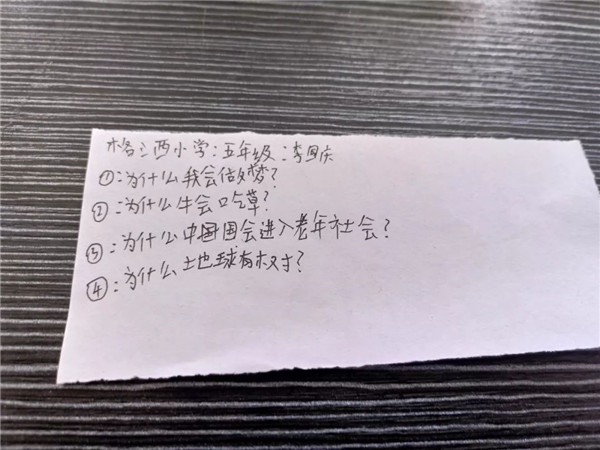 格西小学:五年级:李国庆
①:为什么我会做梦?
②:为什么牛会吃草?
③:为什么中国国会进入老年社会?
④:为什么地球有树?